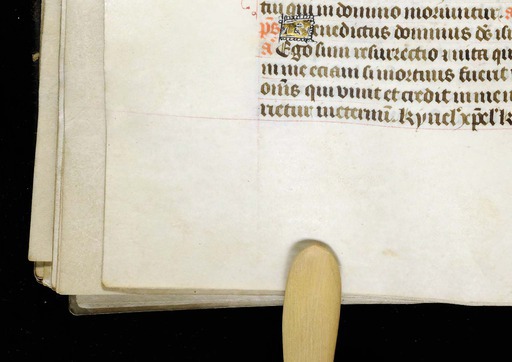 tui qui in domino moriuntur. a
ps Benedictus dominus ds isr
a Ego sum resurrectio et vita qu
in me etiam si mortuus fuerit v
omis qui vivit et credit in me n
rietur in eternu. kyriel xpel k